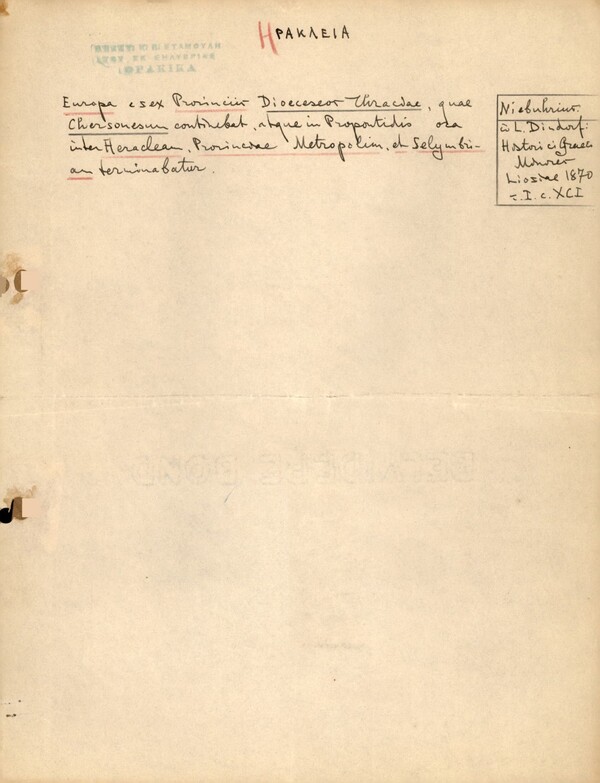 ΗΡΑΚΛΕΙΑ
Europa e sex Provinciis Dioeceseos Thraciae, quae
Chersonesum continebat, atque in Propontidis ora
inter Heracleam, Provinciae Metropolim, et Selymbri-
am terminabatur.
Niebuhrius
L. Dindorf:
Historici Graeci
Minores
Lipsiae 1870
τ. I. c. XCI